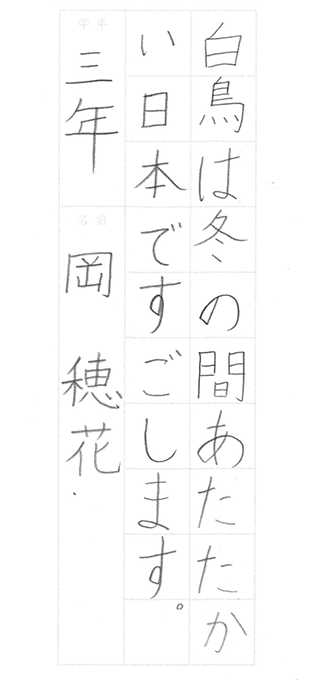 白鳥は冬の間あたたか
い日本ですごします。
学年
三年
名前
岡 穂花